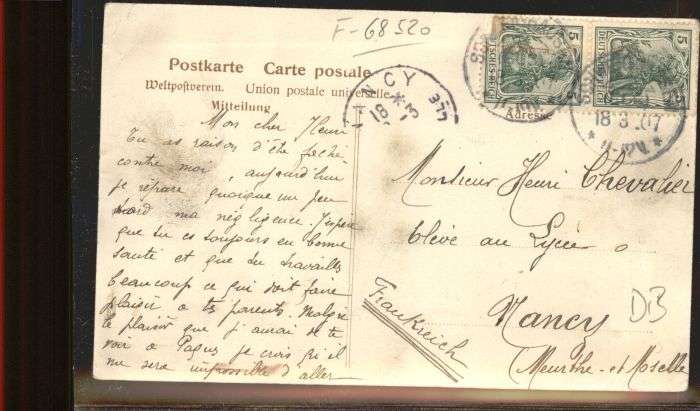 F-68520
Postkarte Carte postale
Weltpostverein. Union postale universelle
Mitteilung
Mon cher Henri
Tu as raison d'être fâché
contre moi, aujourd'hui
je répare quoique un peu
tard ma négligence. J'espère
que tu es toujours en bonne
santé et que tu travailles
beaucoup ce qui doit faire
plaisir à tes parents. Malgré
le plaisir que j'aurai de te
voir à Pâques je crois qu'il
me sera impossible d'aller
NANCY
18 3
5
5
18.3.07
Adresse
Monsieur Henri Chevalier
Elève au Lycée
Nancy
Meurthe-et-Moselle
Frankreich
DB